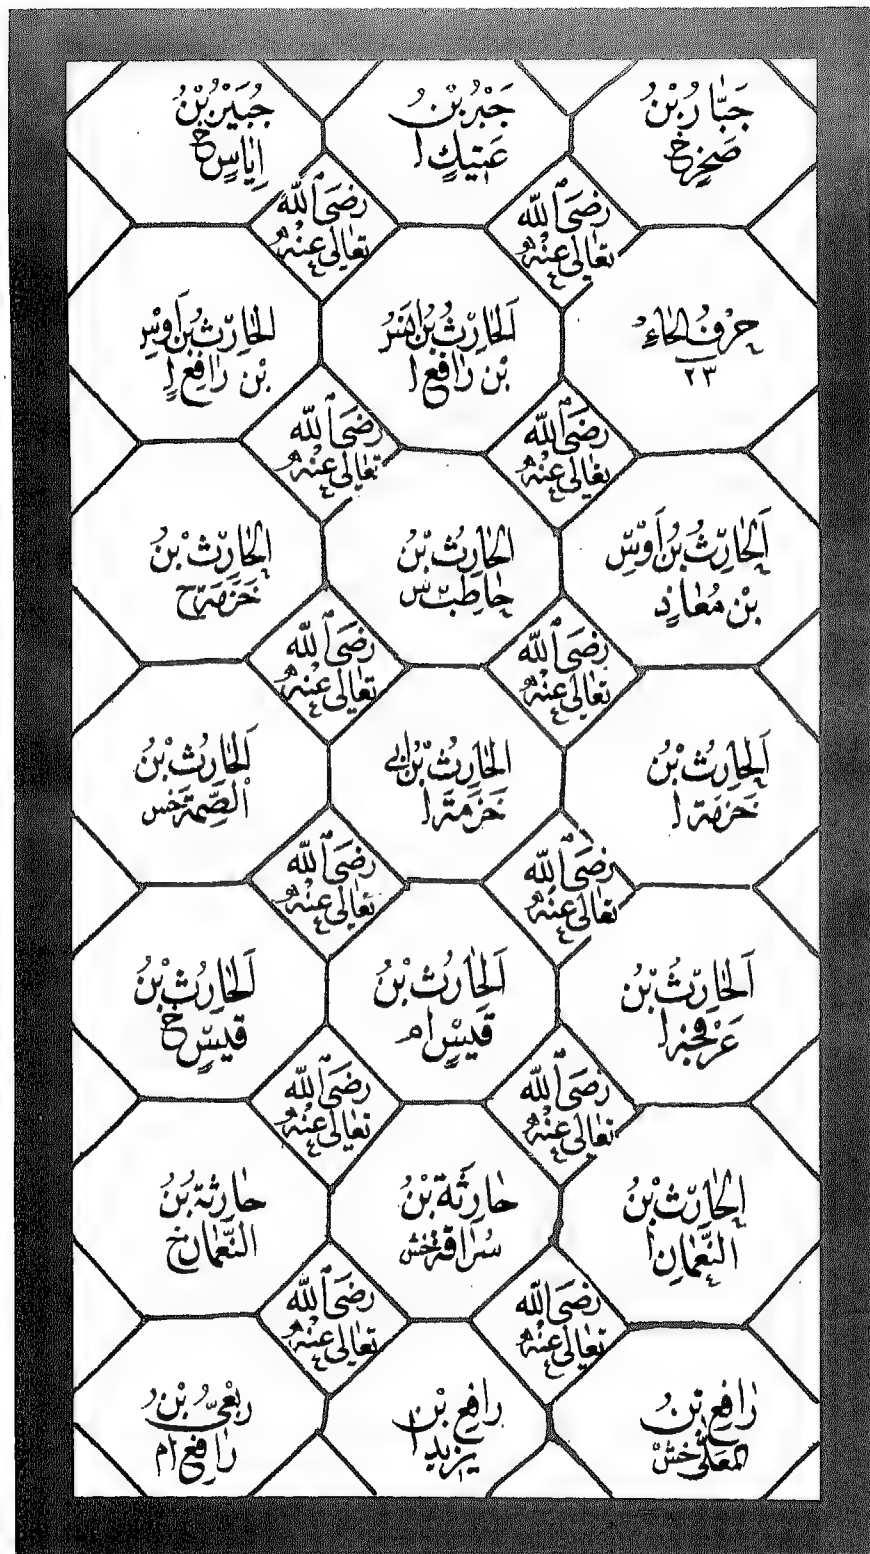 جَبَّارُ بْنُ
صَخْرٍ خ
جَبْرُ بْنُ
عَتِيكٍ ا
جُبَيْرُ بْنُ
إِيَاسٍ خ
رَضِيَ ٱللّٰه
تَعَالٰى عَنْهُ
رَضِيَ ٱللّٰه
تَعَالٰى عَنْهُ
حَرْفُ الحَاءِ
٢٣
اَلحَارِثُ بْنُ
بْن رَافِعٍ ا
الحَارِثُ بْنُ أَوْسِ
بْن رَافِعٍ ا
رَضِيَ ٱللّٰه
تَعَالٰى عَنْهُ
رَضِيَ ٱللّٰه
تَعَالٰى عَنْهُ
اَلحَارِثُ بْنُ أَوْسِ
بْن مُعَاذٍ
الحَارِثُ بْنُ
حَاطِب س
الحَارِثُ بْنُ
خَزَمَة ح
رَضِيَ ٱللّٰه
تَعَالٰى عَنْهُ
رَضِيَ ٱللّٰه
تَعَالٰى عَنْهُ
اَلحَارِثُ بْنُ
خَزَمَة ا
الحَارِثُ بْنُ أَبِي
خَزَمَة ا
اَلحَارِثُ بْنُ
الصِّمَّة خس
رَضِيَ ٱللّٰه
تَعَالٰى عَنْهُ
رَضِيَ ٱللّٰه
تَعَالٰى عَنْهُ
اَلحَارِثُ بْنُ
عَرْفَجَة ا
اَلحَارِثُ بْنُ
قَيْسٍ ام
اَلحَارِثُ بْنُ
قَيْسٍ خ
رَضِيَ ٱللّٰه
تَعَالٰى عَنْهُ
رَضِيَ ٱللّٰه
تَعَالٰى عَنْهُ
الحَارِثُ بْنُ
النُّعْمَانِ ا
حَارِثَةُ بْنُ
سُرَاقَة خش
حَارِثَةُ بْنُ
النُّعْمَانِ خ
رَضِيَ ٱللّٰه
تَعَالٰى عَنْهُ
رَضِيَ ٱللّٰه
تَعَالٰى عَنْهُ
رَافِعُ بْنُ
المُعَلَّى خش
رَافِعُ بْنُ
يَزِيدَ ا
رِبْعِيُّ بْنُ
رَافِعٍ ام